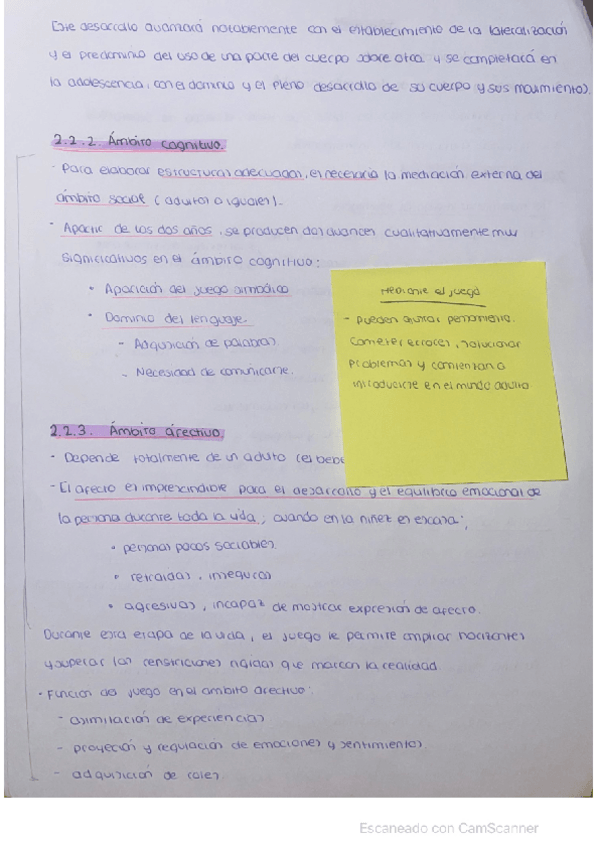 Este desarrollo avanzará notablemente con el establecimiento de la lateralización
y el predominio del uso de una parte del cuerpo sobre otra y se completará en
la adolescencia, con el dominio y el pleno desarrollo de su cuerpo y sus movimientos.
2.2.2. Ámbito cognitivo.
- Para elaborar estructuras adecuadas, es necesario la mediación externa del
ámbito social (adultos o iguales).
- A partir de los dos años, se producen dos avances cualitativamente muy
significativos en el ámbito cognitivo:
• Aparición del juego simbólico
• Dominio del lenguaje.
- Adquisición de palabras
- Necesidad de comunicarse.
Mediante el juego
- Pueden ajustar pensamiento.
Cometer errores, solucionar
problemas y comienzan a
introducirse en el mundo adulto
2.2.3. Ámbito afectivo.
- Depende totalmente de un adulto (es bebé
- El afecto es imprescindible para el desarrollo y el equilibrio emocional de
la persona durante toda la vida, cuando en la niñez es escasa:
• personas pocos sociables.
• retraídas, inseguras
• agresivas, incapaz de mostrar expresión de afecto.
Durante esta etapa de la vida, el juego le permite ampliar horizontes
y superar las restricciones rígidas que marcan la realidad
- Función del juego en el ámbito afectivo:
- asimilación de experiencias
- proyección y regulación de emociones y sentimientos
- adquisición de roles
Escaneado con CamScanner